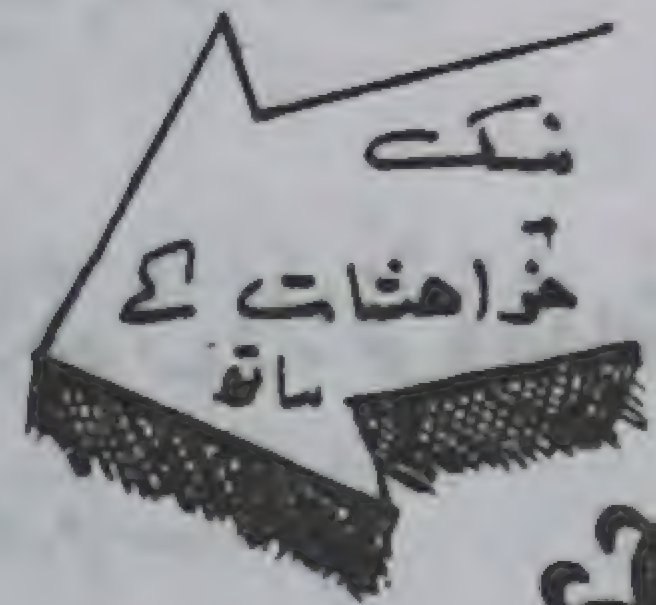 نیک
خواہشات کے
ساتھ